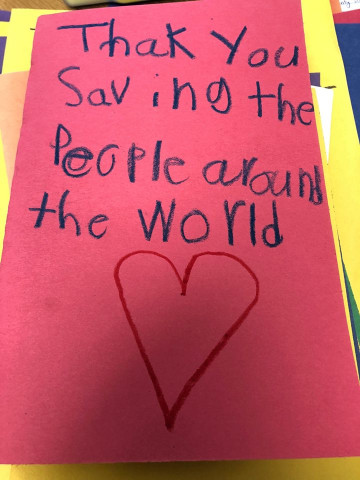 Thak You
Saving the
People around
the World